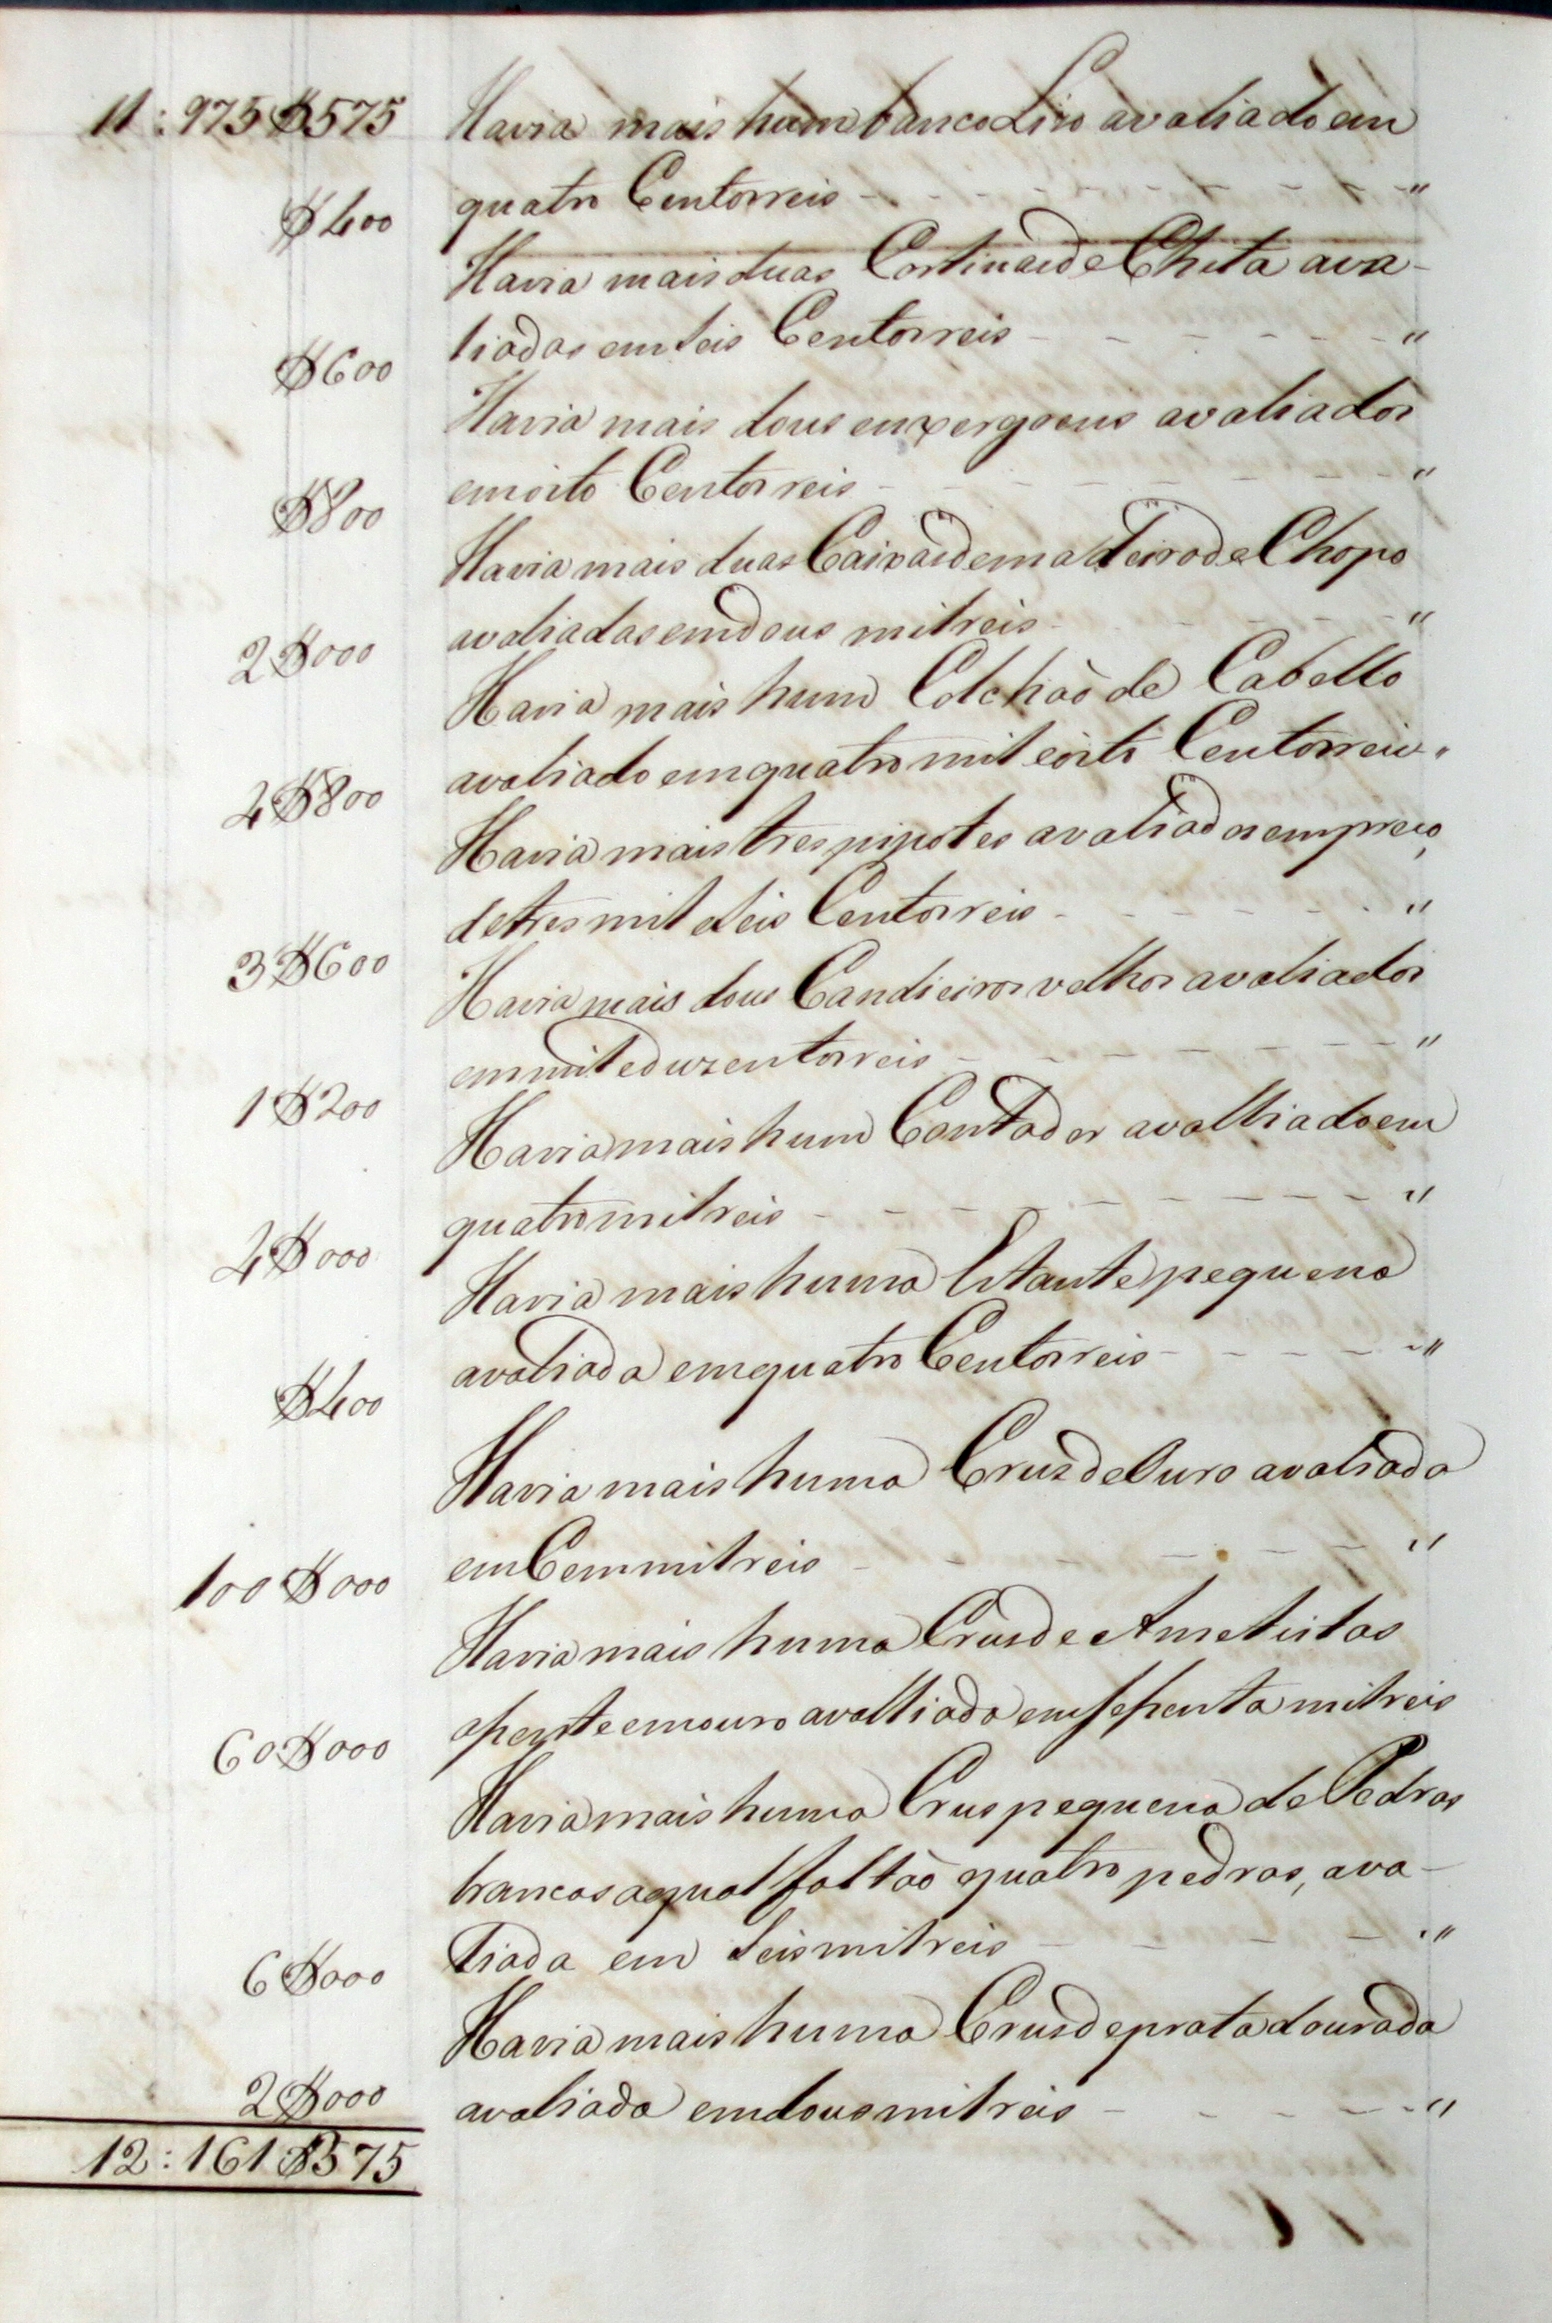 11:975$575 Havia mais hum banco Liso avaliado em
$400 quatro Centos reis - - - - - - - - "
Havia mais duas Cortinas de Chita ava-
$600 liadas em seis Centos reis - - - - - - "
Havia mais dous enxergoens avaliados
$800 em oito Centos reis - - - - - - - "
Havia mais duas Caixas de madeira de Chopo
2$000 avaliadas em dous mil reis - - - - - "
Havia mais hum Colchaõ de Cabello
4$800 avaliado em quatro mil eoito Centos reis "
Havia mais tres pipotes avaliados em preço
3$600 de tres mil e seis Centos reis - - - - - - "
Havia mais dous Candieiros velhos avaliados
1$200 em mil e duzentos reis - - - - - - - "
Havia mais hum Contador avalliado em
4$000 quatro mil reis - - - - - - - - "
Havia mais huma Estante pequena
$400 avaliada em quatro Centos reis - - - - - "
Havia mais huma Crus de Ouro avaliada
100$000 em Cem mil reis - - - - - - "
Havia mais huma Crus de Ametistas
60$000 em ouro avalliada em sesenta mil reis
Havia mais huma Crus pequena de Pedras
brancas aqual faltaõ quatro pedras, ava-
6$000 liada em Seis mil reis - - - - - "
Havia mais huma Crus de prata dourada
2$000 avaliada em dous mil reis - - - - - "
12:161$575